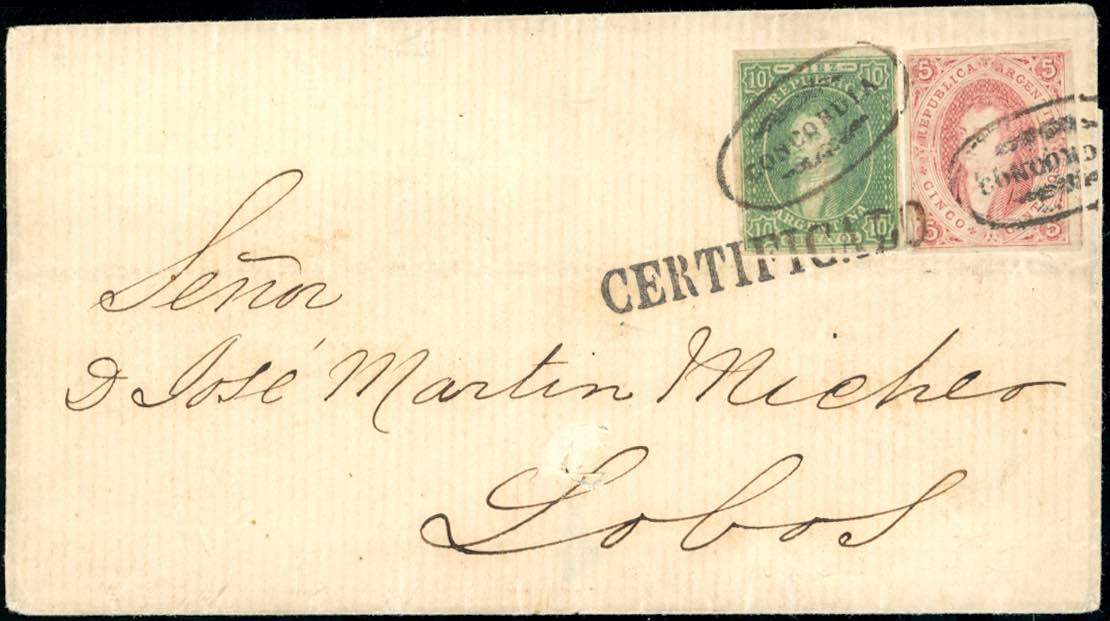 10 DIEZ 10
REPUBLICA
CONCORDIA
ARGENTINA
10 CENTAVOS 10
5 5
REPUBLICA ARGEN
CONCORD
CINCO
5 5
CERTIFICADO
Señor
D José Martin Micheo
Lobos